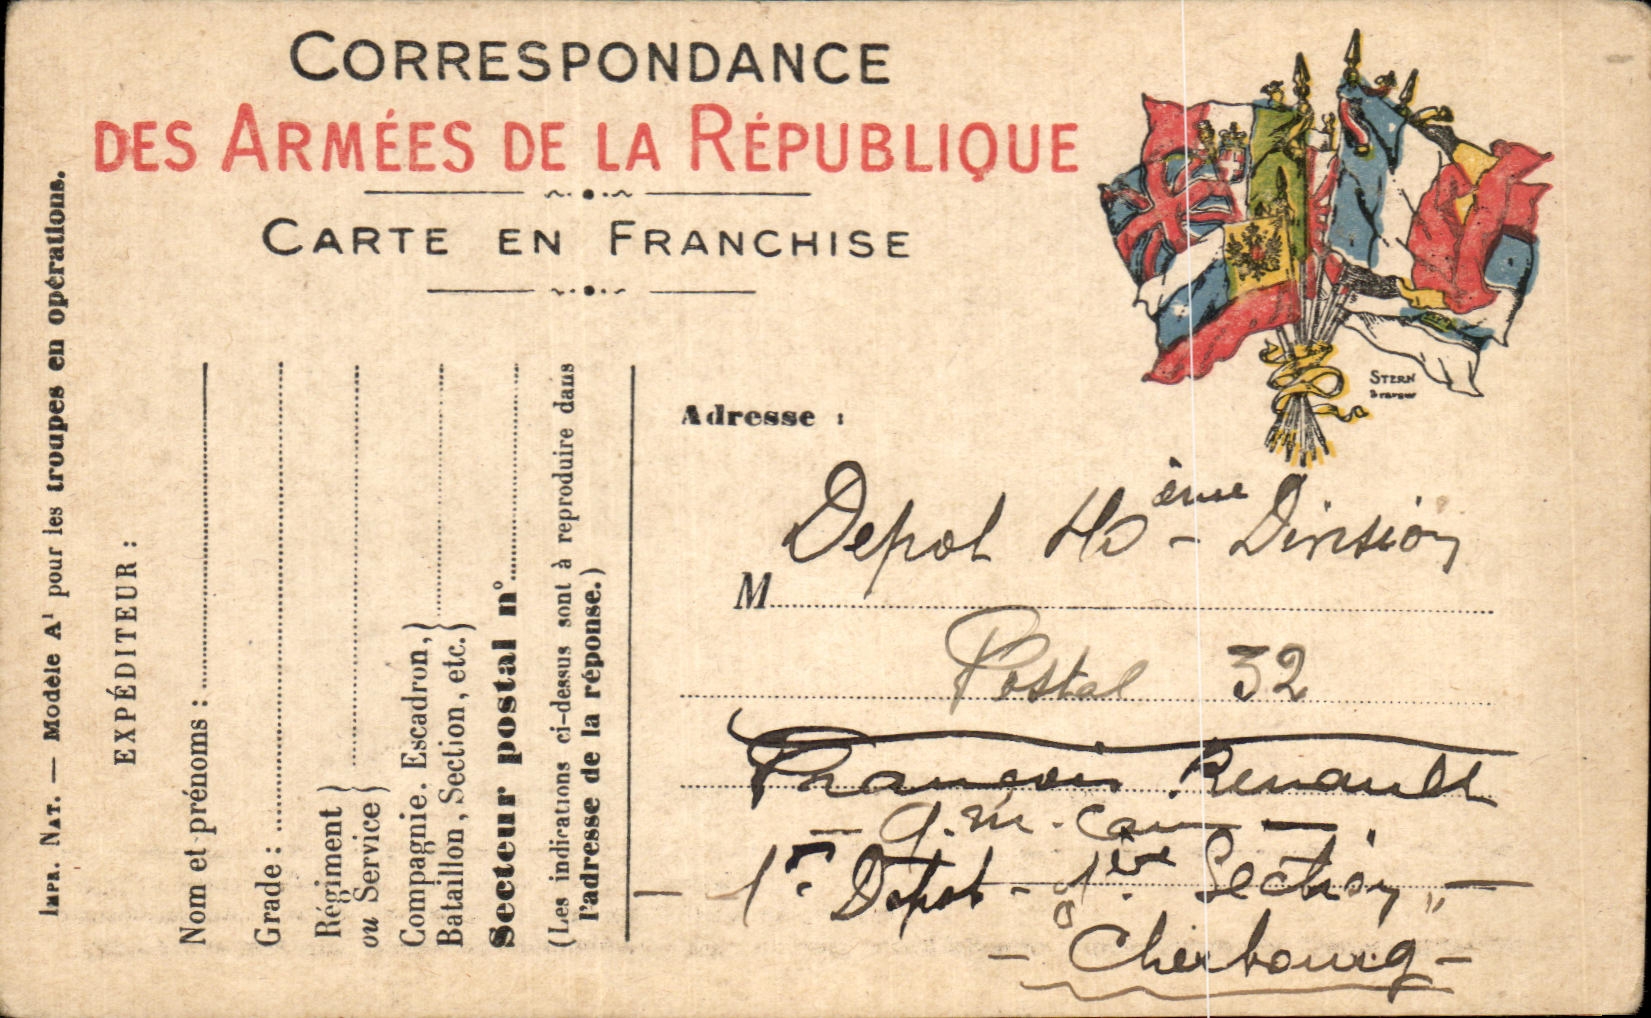 CORRESPONDANCE
DES ARMÉES DE LA RÉPUBLIQUE
CARTE EN FRANCHISE
IMPR. NAT. — Modèle A¹ pour les troupes en opérations.
EXPÉDITEUR :
Nom et prénoms :
Grade :
Régiment }
ou Service }
Compagnie. Escadron, }
Bataillon, Section, etc. }
Secteur postal n°
(Les indications ci-dessus sont à reproduire dans
l'adresse de la réponse.)
STERN
Graveur
Adresse :
Depot ème - Division
M
Postal 32
François Renault
1er Depot - 1ère Section
- Cherbourg -